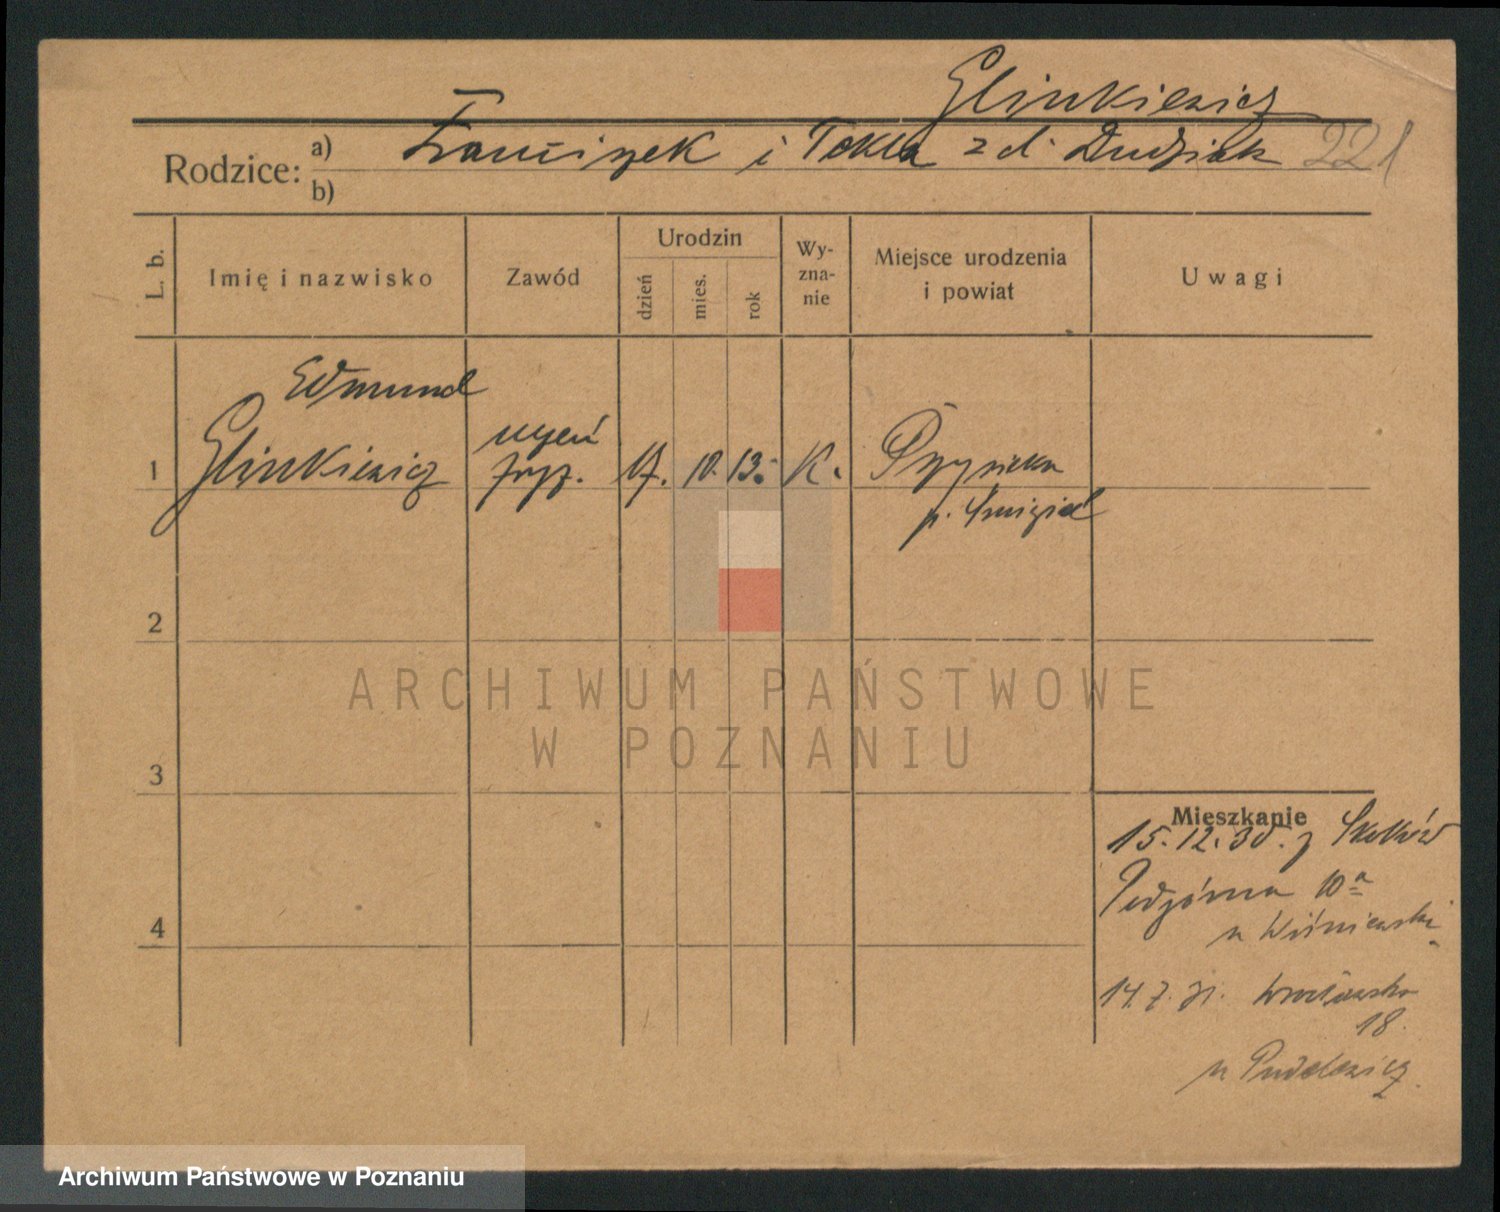 Glinkiewicz
Rodzice: a) Franciszek i Tekla z d. Dudziak 221
b)
L. b.
Imię i nazwisko
Zawód
Urodzin
dzień
mies.
rok
Wy-
zna-
nie
Miejsce urodzenia
i powiat
Uwagi
Edmund
1 Glinkiewicz
uczeń
fryz.
17. 10. 13. K.
Przysieka
p. Śmigiel
2
3
4
Mieszkanie
15.12.30. z Skoków
Podgórna 10a
u Wiśniewski
14.7.31. Wrocławska
18.
u Pudelewicz.
ARCHIWUM PAŃSTWOWE
W POZNANIU
Archiwum Państwowe w Poznaniu